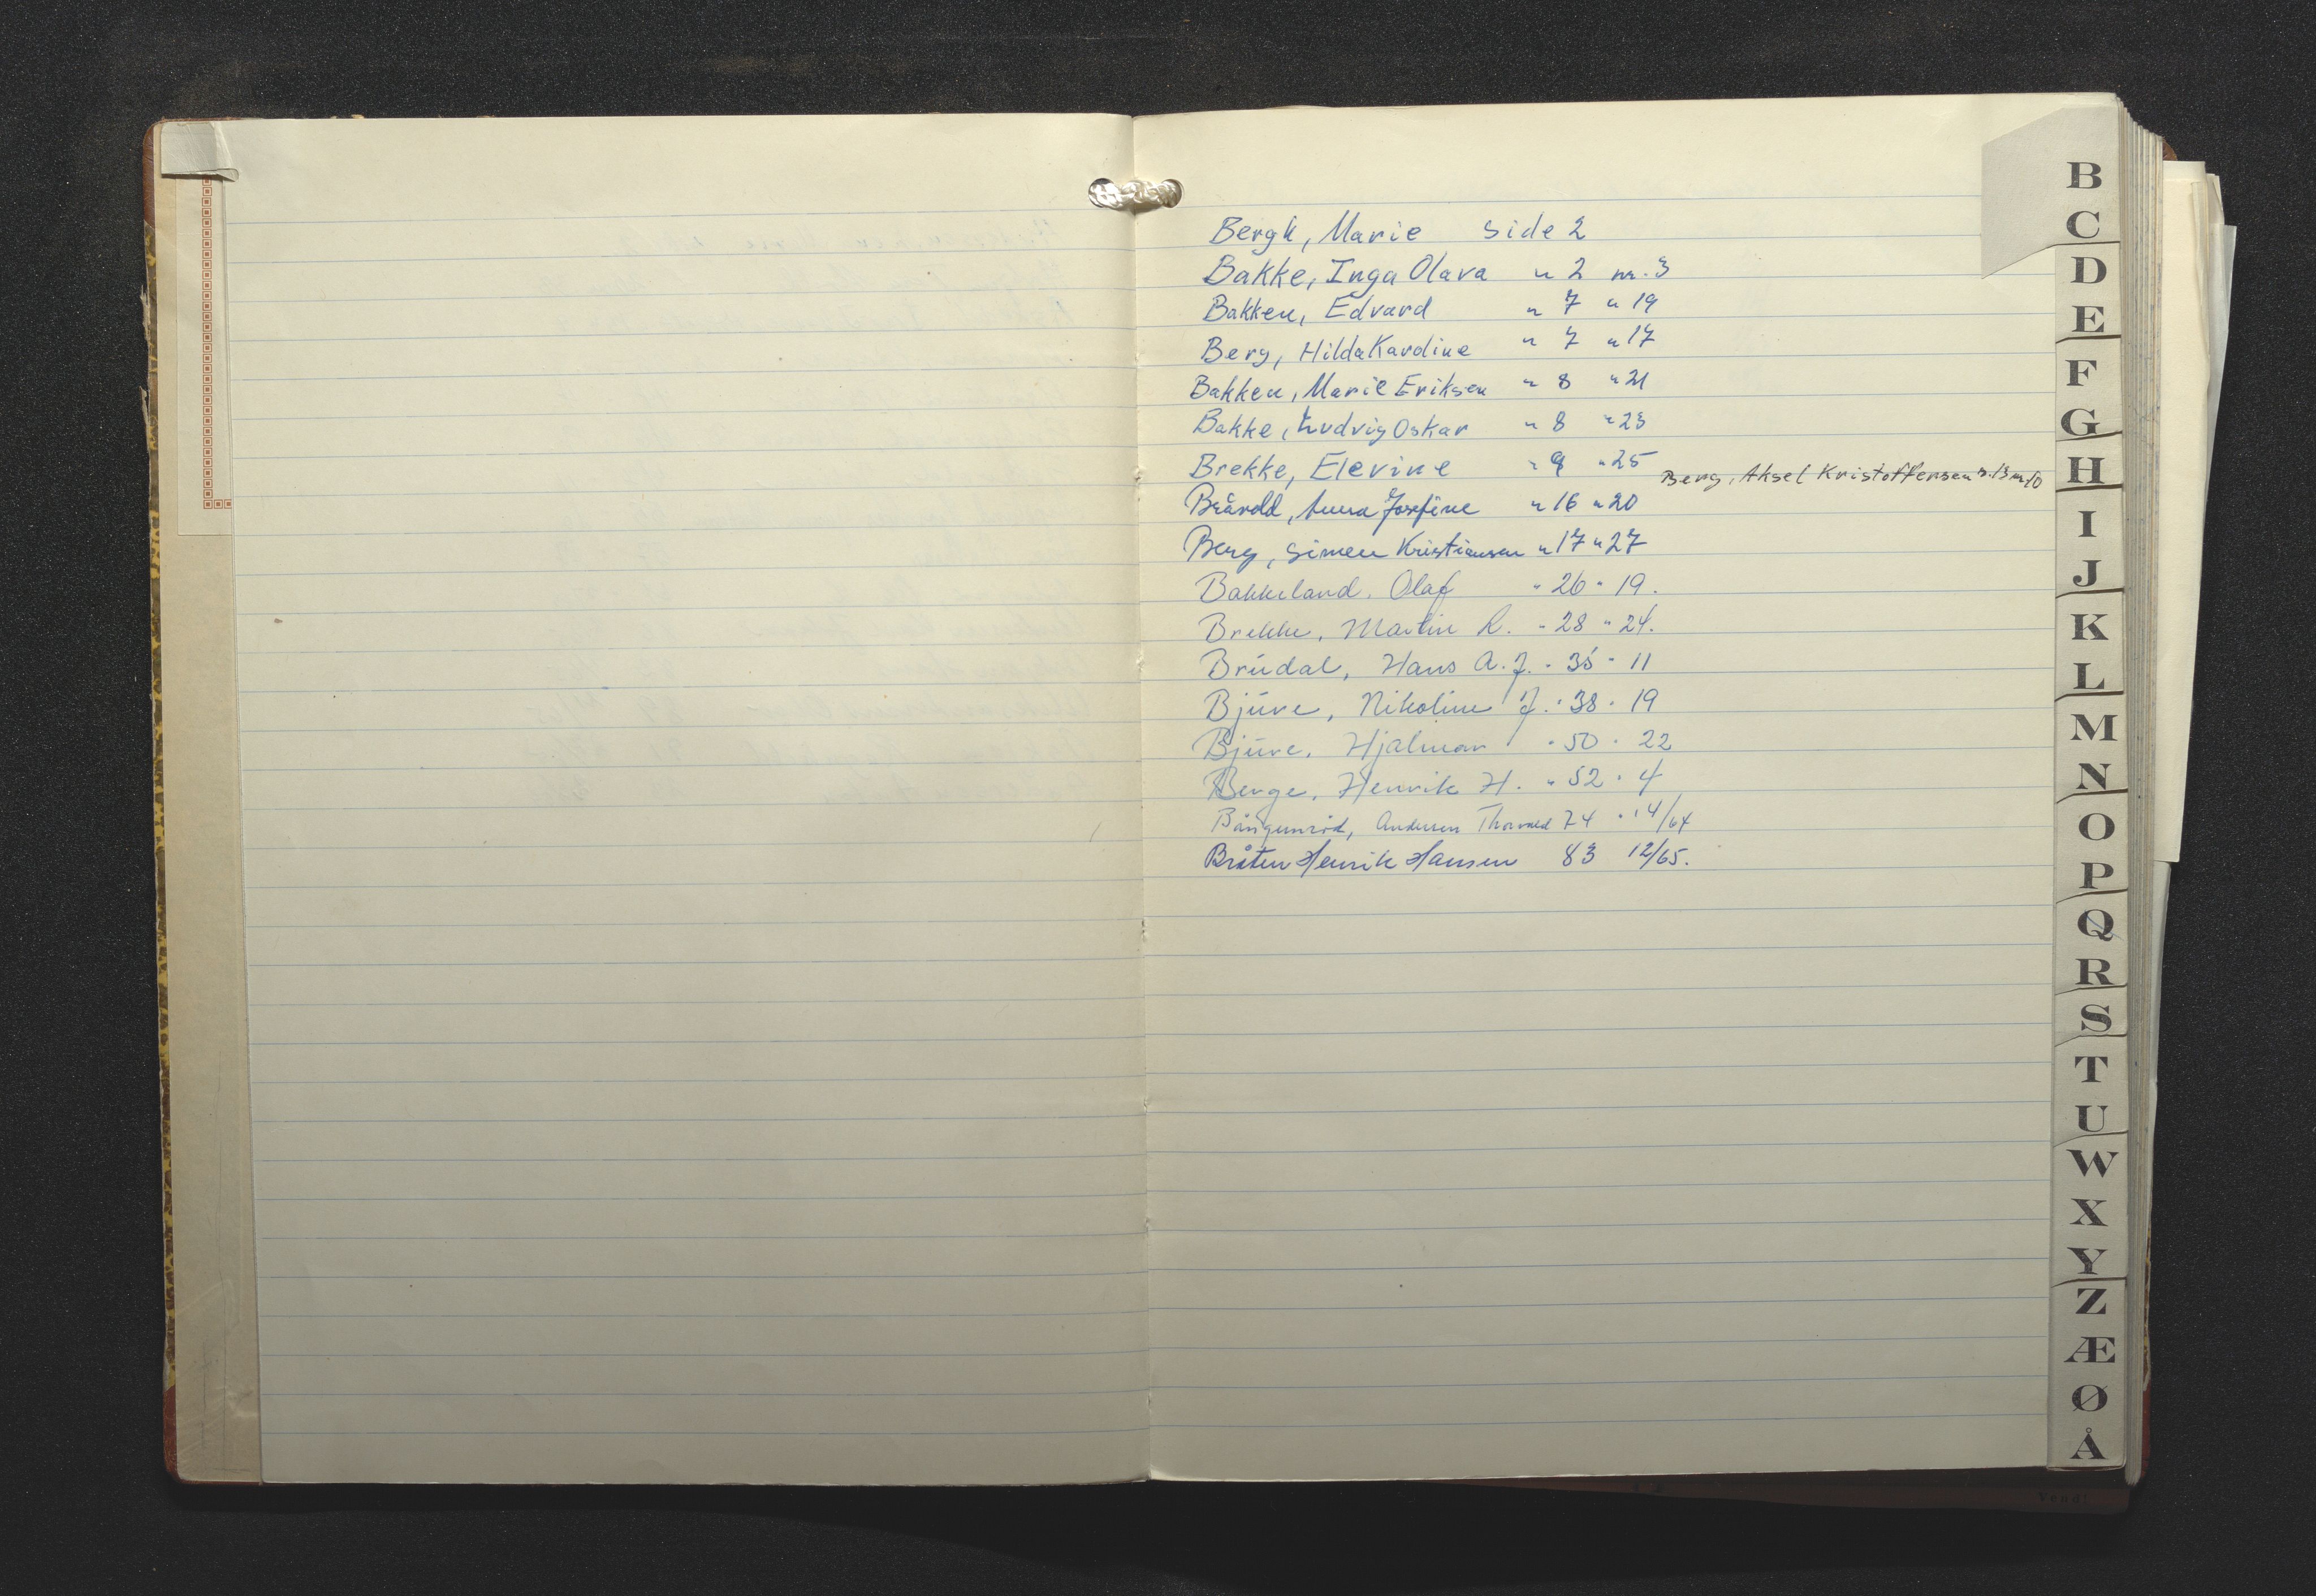 Bergh, Marie side 2
Bakke, Inga Olava " 2 nr. 3
Bakken, Edvard " 7 " 19
Berg, Hilda Karoline " 7 " 17
Bakken, Marie Eriksen " 8 " 21
Bakke, Ludvig Oskar " 8 " 23
Brekke, Elevine " 9 " 25
Berg, Aksel Kristoffersen s. 13 nr. 10
Bråvold, Anna Josefine " 16 " 20
Berg, Simen Kristiansen " 17 " 27
Bakkeland, Olaf " 26 " 19.
Brekke, Martin L. " 28 " 24.
Brudal, Hans A. J. " 35 " 11
Bjure, Nikoline J. " 38 " 19
Bjure, Hjalmar " 50 " 22
Berge, Henrik H. " 52 " 4
Andersen Thorvald 74 " 14/64
Bråten Henrik Hansen 83 12/65.
B
C
D
E
F
G
H
I
J
K
L
M
N
O
P
Q
R
S
T
U
W
X
Y
Z
Æ
Ø
Å
Vend!